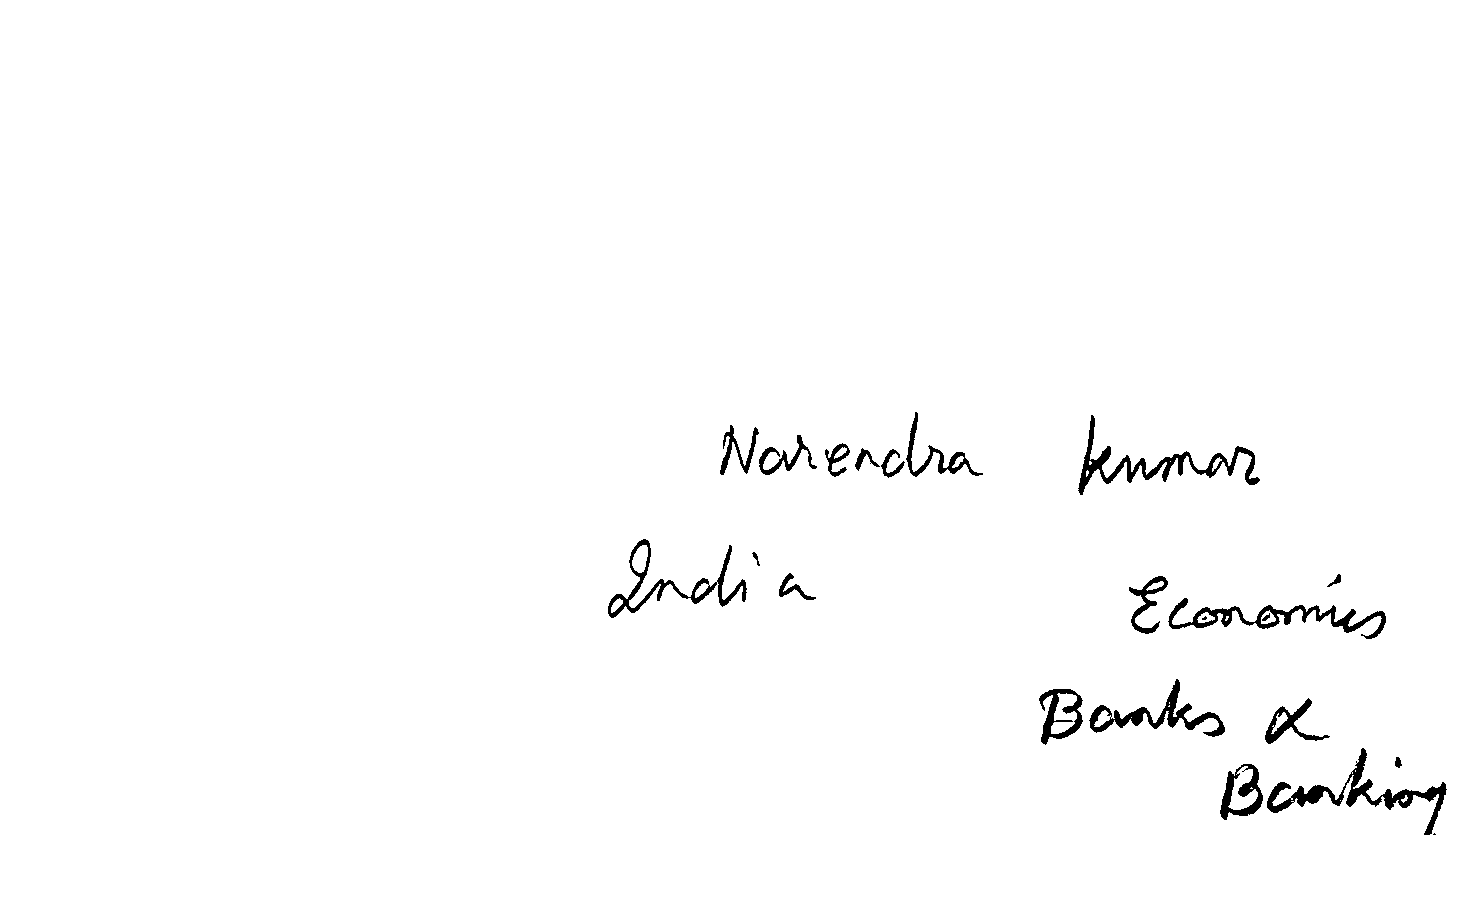 Narendra kumar
India
Economics
Banks &
Banking